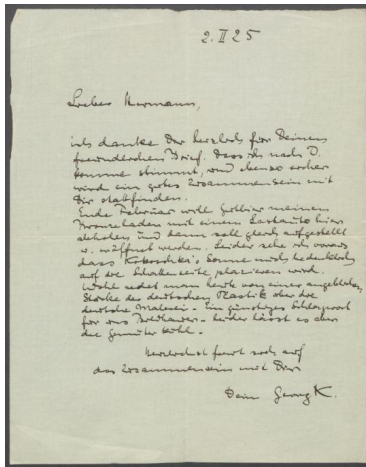 2. II 25
Lieber Hermann,
ich danke Dir herzlich für Deinen
freundlichen Brief. Dass ich nach D.
komme stimmt, und ebenso sicher
wird ein gutes Zusammensein mit
Dir stattfinden.
Ende Februar will meinen
Bronzeladen mit einem Lastauto hier
abholen und dann soll gleich aufgestellt
u. eröffnet werden. Leider sehe ich voraus
dass Kokoschka's Sonne mich bedenklich
auf die Schattenseite plazieren wird.
Wohl redet man heute von einer angeblichen
Stärke der deutschen Plastik über die
deutsche Malerei. Ein günstiges Schlagwort
für uns Bildhauer. Leider lässt es aber
die Gemüter kühl.
Herzlichst freut sich auf
das Zusammensein mit Dir
Dein Georg K.